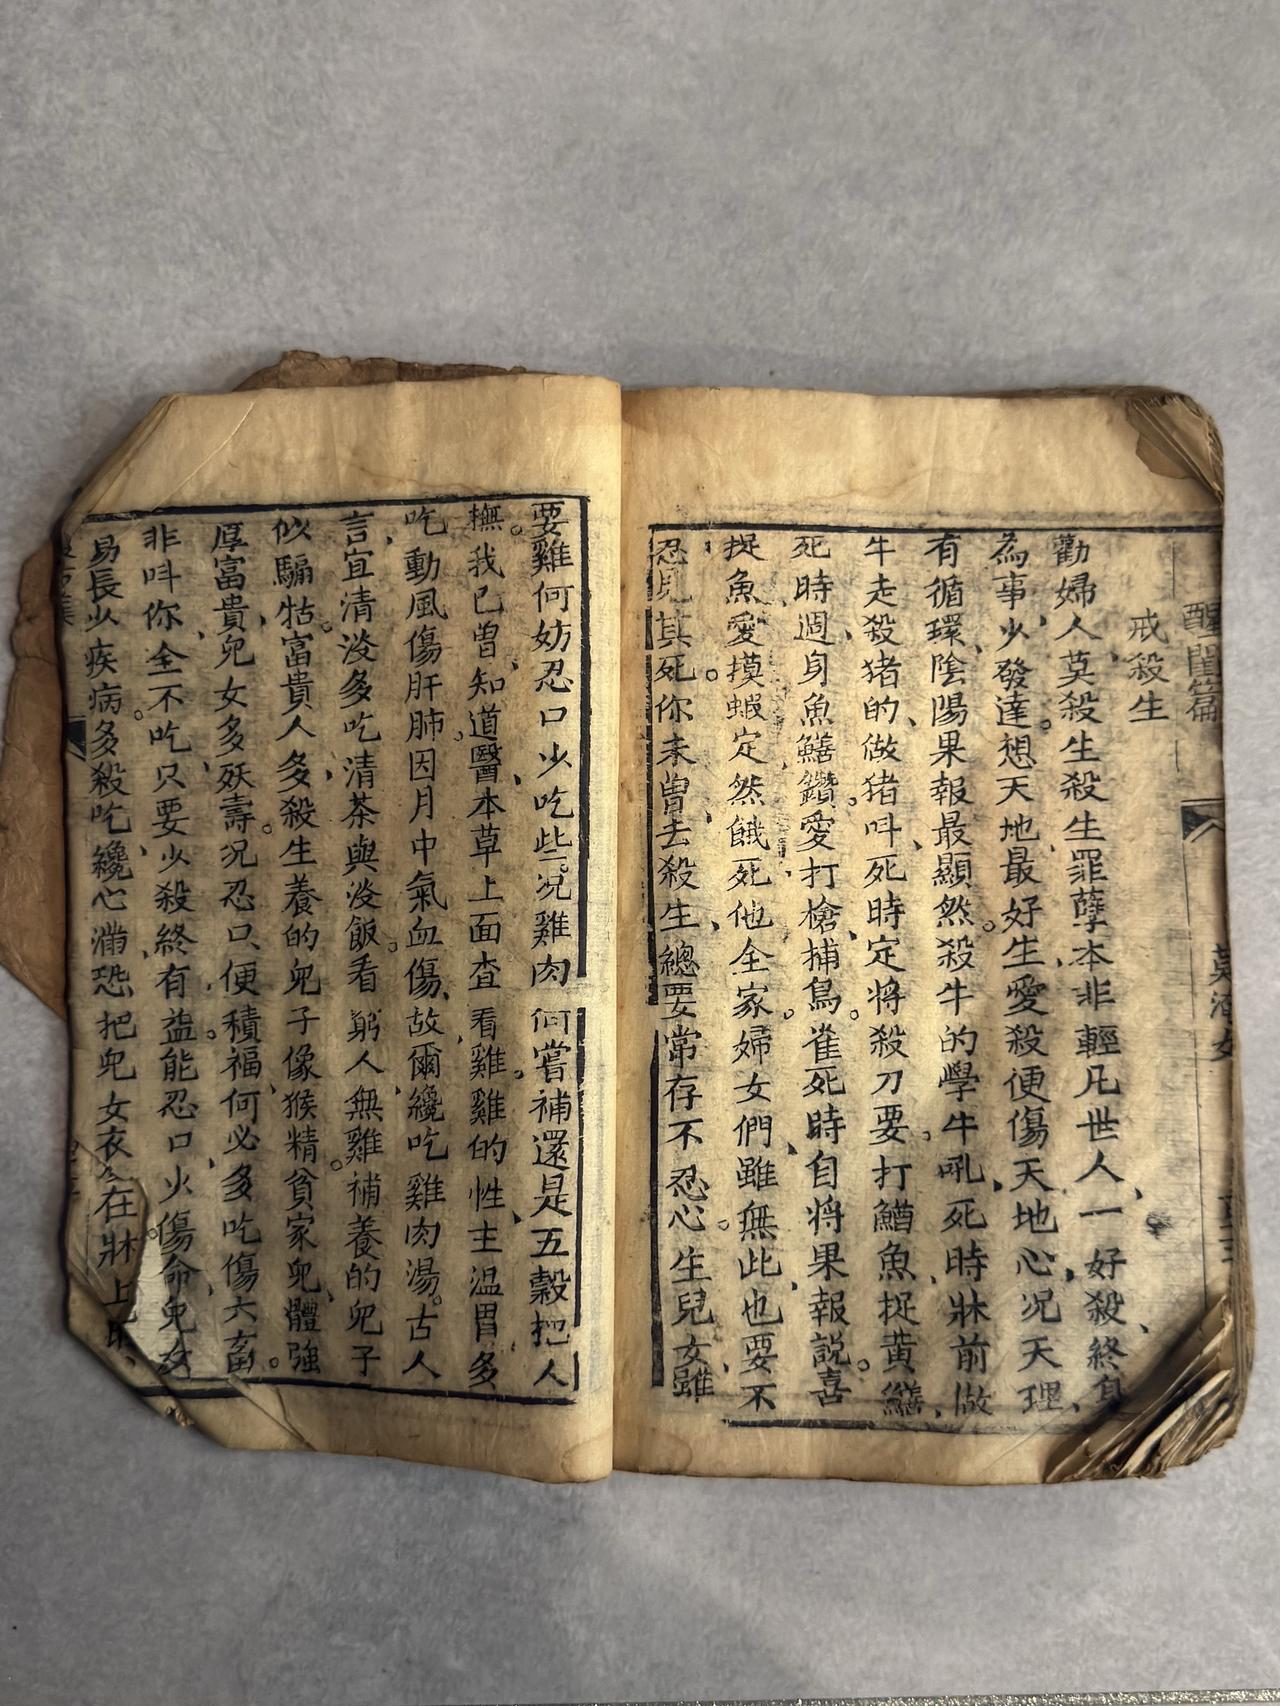 醒閨篇
戒殺生
勸婦人、莫殺生殺生罪孽本非輕凡世人、一好殺、終身
為事、少發達。想天地、最好生、愛殺便傷天地心、况天理、
有循環、陰陽果報最顯然。殺牛的、學牛吼、死時牀前做
牛走、殺猪的、做猪呌、死時定將殺刀要。打鰌魚、捉黄鱔、
死時週身魚鱔鑽。愛打槍、捕鳥。雀死時自將果報説。喜
捉魚、愛摸蝦、定然餓死他全家。婦女們、雖無此、也要不
忍見其死。你未曾、去殺生、總要常存不忍心。生兒女、雖
要雞何妨忍口少吃些。况雞肉何嘗補還是五穀把人
撫。我已曾、知道。醫、本草上面查看雞。雞的性、主温胃、多
吃、動風傷肝肺因月中氣血傷、故爾纔吃雞肉湯。古人
言、宜清淡多吃清茶與淡飯。看躬人、無雞補養的兒子
似騸牯。富貴人、多殺生養的兒子像猴精。貧家兒、體強
厚富貴、兒女多殀壽。况忍口、便積福、何必多吃傷六畜。
非呌你、全不吃、只要少殺終有益。能忍口、少傷命、兒女
易長少疾病。多殺吃、纔心滿、恐把兒女衣
在牀上